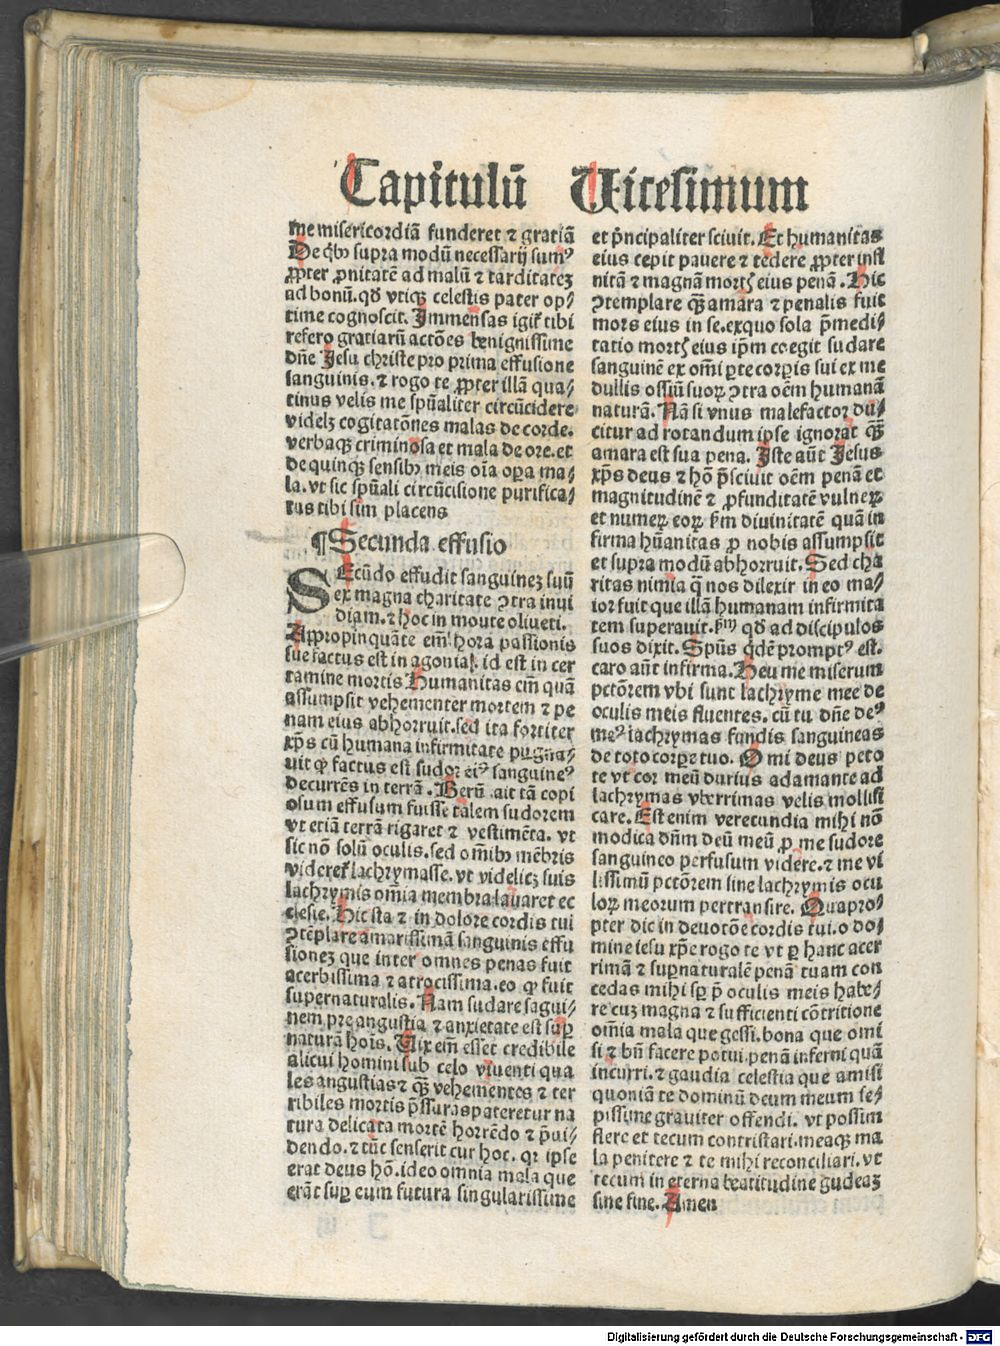 Capitulū Uicesimum
me misericordiā funderet ⁊ gratiā
De q̄bꝰ supra modū necessarij sumꝰ
ꝓpter ꝓnitatē ad malū ⁊ tarditatēꝫ
ad bonū. qd̄ vtiqꝫ celestis pater op⸗
time cognoscit. Immensas igit̄ tibi
refero gratiarū actōes benignissime
dn̄e Jesu christe pro prima effusione
sanguinis. ⁊ rogo te ꝓpter illā qua⸗
tinus velis me spūaliter circūcidere
videlꝫ cogitatōnes malas de corde.
verbaqꝫ criminosa et mala de ore. et
de quinqꝫ sensibꝰ meis oīa oꝑa ma⸗
la. vt sic spūali circūcisione purifica⸗
tus tibi sim placens
¶ Secunda effusio
SEcūdo effudit sanguineꝫ suū
ex magna charitate ꝯtra inui
diam. ⁊ hoc in monte oliueti.
Appropinquāte em̄ hora passionis
sue factus est in agonia. id est in cer
tamine mortis Humanitas em̄ quā
assumpsit vehementer mortem ⁊ pe
nam eius abhorruit. sed ita fortiter
xp̄s cū humana infirmitate pugna⸗
uit ꝙ factus est sudor eiꝰ sanguineꝰ
decurrēs in terrā. Verū ait tā copi
osum effusum fuisse talem sudorem
vt etiā terrā rigaret ⁊ vestimēta. vt
sic nō solū oculis. sed om̄ibꝰ mēbris
videret̄ lachrymasse. vt videliꝫ suis
lachrymis om̄ia membra lauaret ec
clesie. Hic sta ⁊ in dolore cordis tui
ꝯtēplare amarissimā sanguinis effu
sioneꝫ que inter omnes penas fuit
acerbissima ⁊ atrocissima. eo ꝙ fuit
supernaturalis. Nam sudare sagui⸗
nem pre angustia ⁊ anxietate est suꝑ
naturā hoīs. Uix em̄ esset credibile
alicui homini sub celo viuenti qua
les angustias ⁊ qꝫ̄ vehementes ⁊ ter
ribiles mortis p̄ssuras pateretur na
tura delicata mortē horrēdo ⁊ p̄ui⸗
dendo. ⁊ tūc senserit cur hoc. qꝛ ipse
erat deus hō. ideo omnia mala que
erāt suꝑ eum futura singularissime
et p̄ncipaliter sciuit. Et humanitas
eius cepit pauere ⁊ tedere ꝓpter infi
nitā ⁊ magnā mortꝭ eius penā. Hic
ꝯtemplare qꝫ̄ amara ⁊ penalis fuit
mors eius in se. exquo sola p̄medi⸗
tatio mortꝭ eius ip̄m coegit sudare
sanguinē ex om̄i ꝑte corꝑis sui ex me
dullis ossiū suoꝝ ꝯtra oēm humanā
naturā. Nā si vnus malefactor du⸗
citur ad rotandum ipse ignorat qꝫ̄
amara est sua pena. Iste aūt Jesus
xp̄s deus ⁊ hō p̄sciuit oēm penā et
magnitudinē ⁊ ꝓfunditatē vulneꝝ
et numeꝝ eoꝝ ẜm diuinitatē quā in
firma hūanitas ꝓ nobis assumpsit
et supra modū abhorruit. Sed cha
ritas nimia q̄ nos dilexit in eo ma⸗
ior fuit que illā humanam infirmita
tem superauit. ẜm qd̄ ad discipulos
suos dixit. Spūs q̄dē promptꝰ est.
caro aūt infirma. Heu me miserum
pctōrem vbi sunt lachryme mee de
oculis meis fluentes. cū tu dn̄e deꝰ
meꝰ lachrymas fundis sanguineas
de toto corꝑe tuo. O mi deus peto
te vt cor meū durius adamante ad
lachrymas vberrimas velis mollifi
care. Est enim verecundia mihi nō
modica dn̄m deū meū ꝓ me sudore
sanguineo perfusum videre. ⁊ me vi
lissimū pctōrem sine lachrymis ocu
loꝝ meorum pertransire. Quapro⸗
pter dic in deuotōe cordis tui. o do⸗
mine iesu xp̄e rogo te vt ꝑ hanc acer
rimā ⁊ suꝑnaturalē penā tuam con
cedas mihi sꝑ p̄ oculis meis habe⸗
re cuꝫ magna ⁊ sufficienti cōtritione
om̄ia mala que gessi. bona que omi
si ⁊ bn̄ facere potui. penā inferni quā
incurri. ⁊ gaudia celestia que amisi
quoniā te dominū deum meum se⸗
pissime grauiter offendi. vt possim
flere et tecum contristari. meaqꝫ ma
la penitere ⁊ te mihi reconciliari. vt
tecum in eterna beatitudine gudeaꝫ
sine fine. Amen
Digitalisierung gefördert durch die Deutsche Forschungsgemeinschaft - DFG